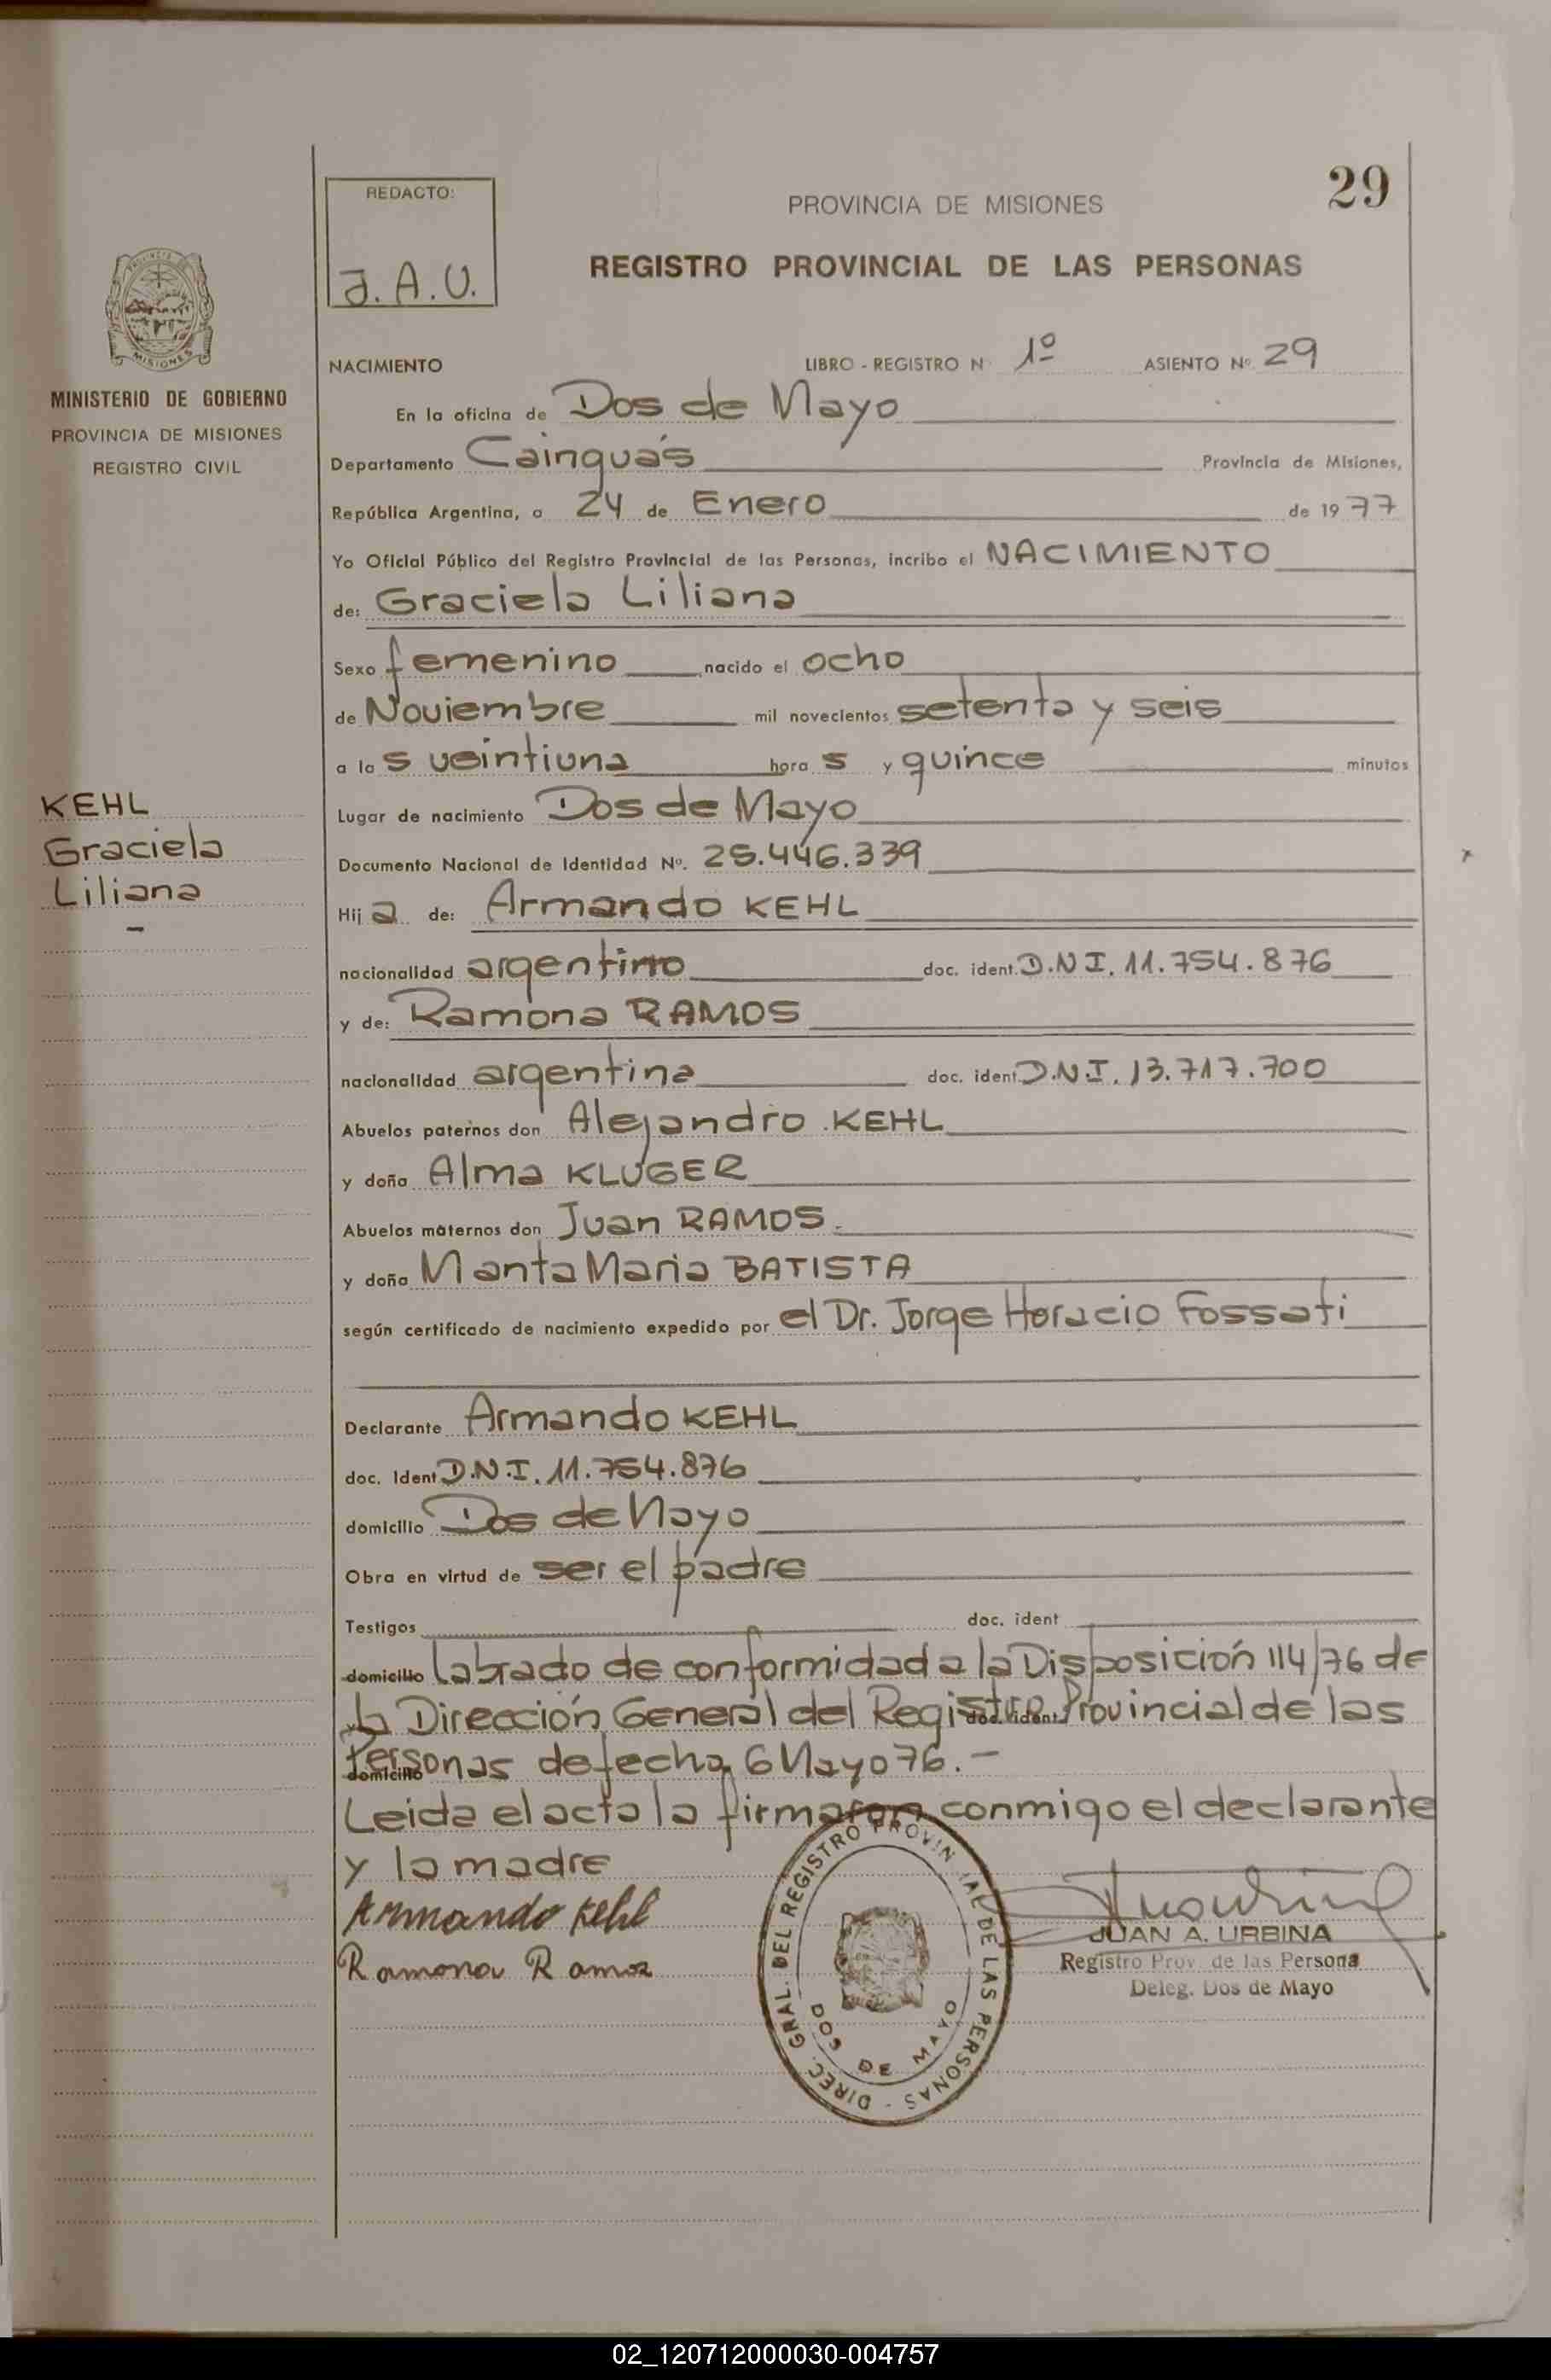 29
REDACTO:
J.A.U.
PROVINCIA DE MISIONES
REGISTRO PROVINCIAL DE LAS PERSONAS
PROVINCIA DE
MISIONES
MINISTERIO DE GOBIERNO
PROVINCIA DE MISIONES
REGISTRO CIVIL
KEHL
Graciela
Liliana
-
NACIMIENTO LIBRO - REGISTRO N 1º ASIENTO Nº 29
En la oficina de Dos de Mayo
Departamento Cainguás Provincia de Misiones,
República Argentina, a 24 de Enero de 1977
Yo Oficial Público del Registro Provincial de las Personas, incribo el NACIMIENTO
de: Graciela Liliana
Sexo femenino nacido el ocho
de Noviembre mil novecientos setenta y seis
a las veintiuna horas y quince minutos
Lugar de nacimiento Dos de Mayo
Documento Nacional de Identidad Nº. 25.446.339
Hija de: Armando KEHL
nacionalidad argentino doc. ident. D.N.I. 11.754.876
y de: Ramona RAMOS
nacionalidad argentina doc. ident. D.N.I. 13.717.700
Abuelos paternos don Alejandro KEHL
y doña Alma KLUGER
Abuelos maternos don Juan RAMOS.
y doña Manta Maria BATISTA
según certificado de nacimiento expedido por el Dr. Jorge Horacio Fossati
Declarante Armando KEHL
doc. Ident D.N.I. 11.754.876
domicilio Dos de Mayo
Obra en virtud de ser el padre
Testigos doc. ident
domicilio Labrado de conformidad a la Disposición 114/76 de
la Dirección General del Registro doc. ident. Provincial de las
domicilio Personas de fecha 6 Mayo 76.-
Leida el acta la firmaron conmigo el declarante
y la madre
Armando Kehl
Ramona Ramos
DIREC. GRAL. DEL REGISTRO PROVINCIAL DE LAS PERSONAS -
DOS DE MAYO
JUAN A. URBINA
Registro Prov. de las Persona
Deleg. Dos de Mayo
02_120712000030-004757